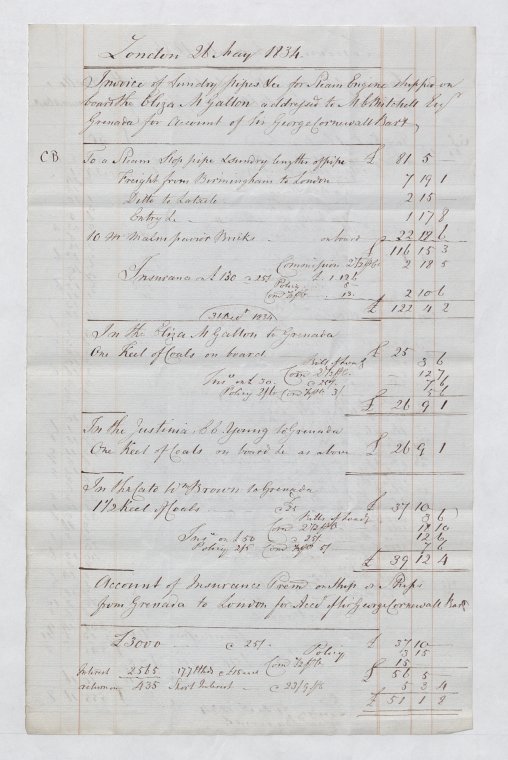 London 28 May 1834
Invoice of Sundry pipes &c for Steam Engine shipped on
board the Eliza McGallon addressed to Mitchell Esq
Grenada for Account of Sir George Cornewall Bart
CB To a Steam Stop pipe & sundry lengths of pipe £ 81 5 -
Freight from Birmingham to London 7 19 1
Ditto to 2 15 -
Entry &c 1 17 8
10 Bricks on board 22 18 6
£ 116 15 3
Commission 2½ pCt 2 18 5
Insurance on £130 @ 25/ £ 1 12 6
Policy 5
Com ½ pCt 13 2 10 6
£ 122 4 2
31 1834
In the Eliza McGallon to Grenada
One Keel of Coals on board £ 25
Bills of Lading 3 6
Com 2½ pCt 12 7
Ins on £30 @ 25/ 7 6
Policy Com ½ pCt 3/ 5 6
£ 26 9 1
In the Justinia, Young to Grenada
One Keel of Coals on board &c as above £ 26 9 1
In the Cato Wm Brown to Grenada
1 1/2 Keel of Coals @ 25 £ 37 10
Bills of Lading 3 6
Com 2½ pCt 18 10
Ins on £50 @ 25/ 12 6
Policy 2/6 Com ½ pCt 5/ 7 6
£ 39 12 4
Account of Insurance Prem on Ship or Ships
from Grenada to London for Acct of Sir George Cornewall Bart
£3000 @ 25/ £ 37 10
Policy 3 15
Com ½ pCt 15
£ 56 5 -
Interest 2565 177 Hhds @ £15
return on 435 Short Interest @ 23/9 pCt 5 3 4
£ 51 1 8